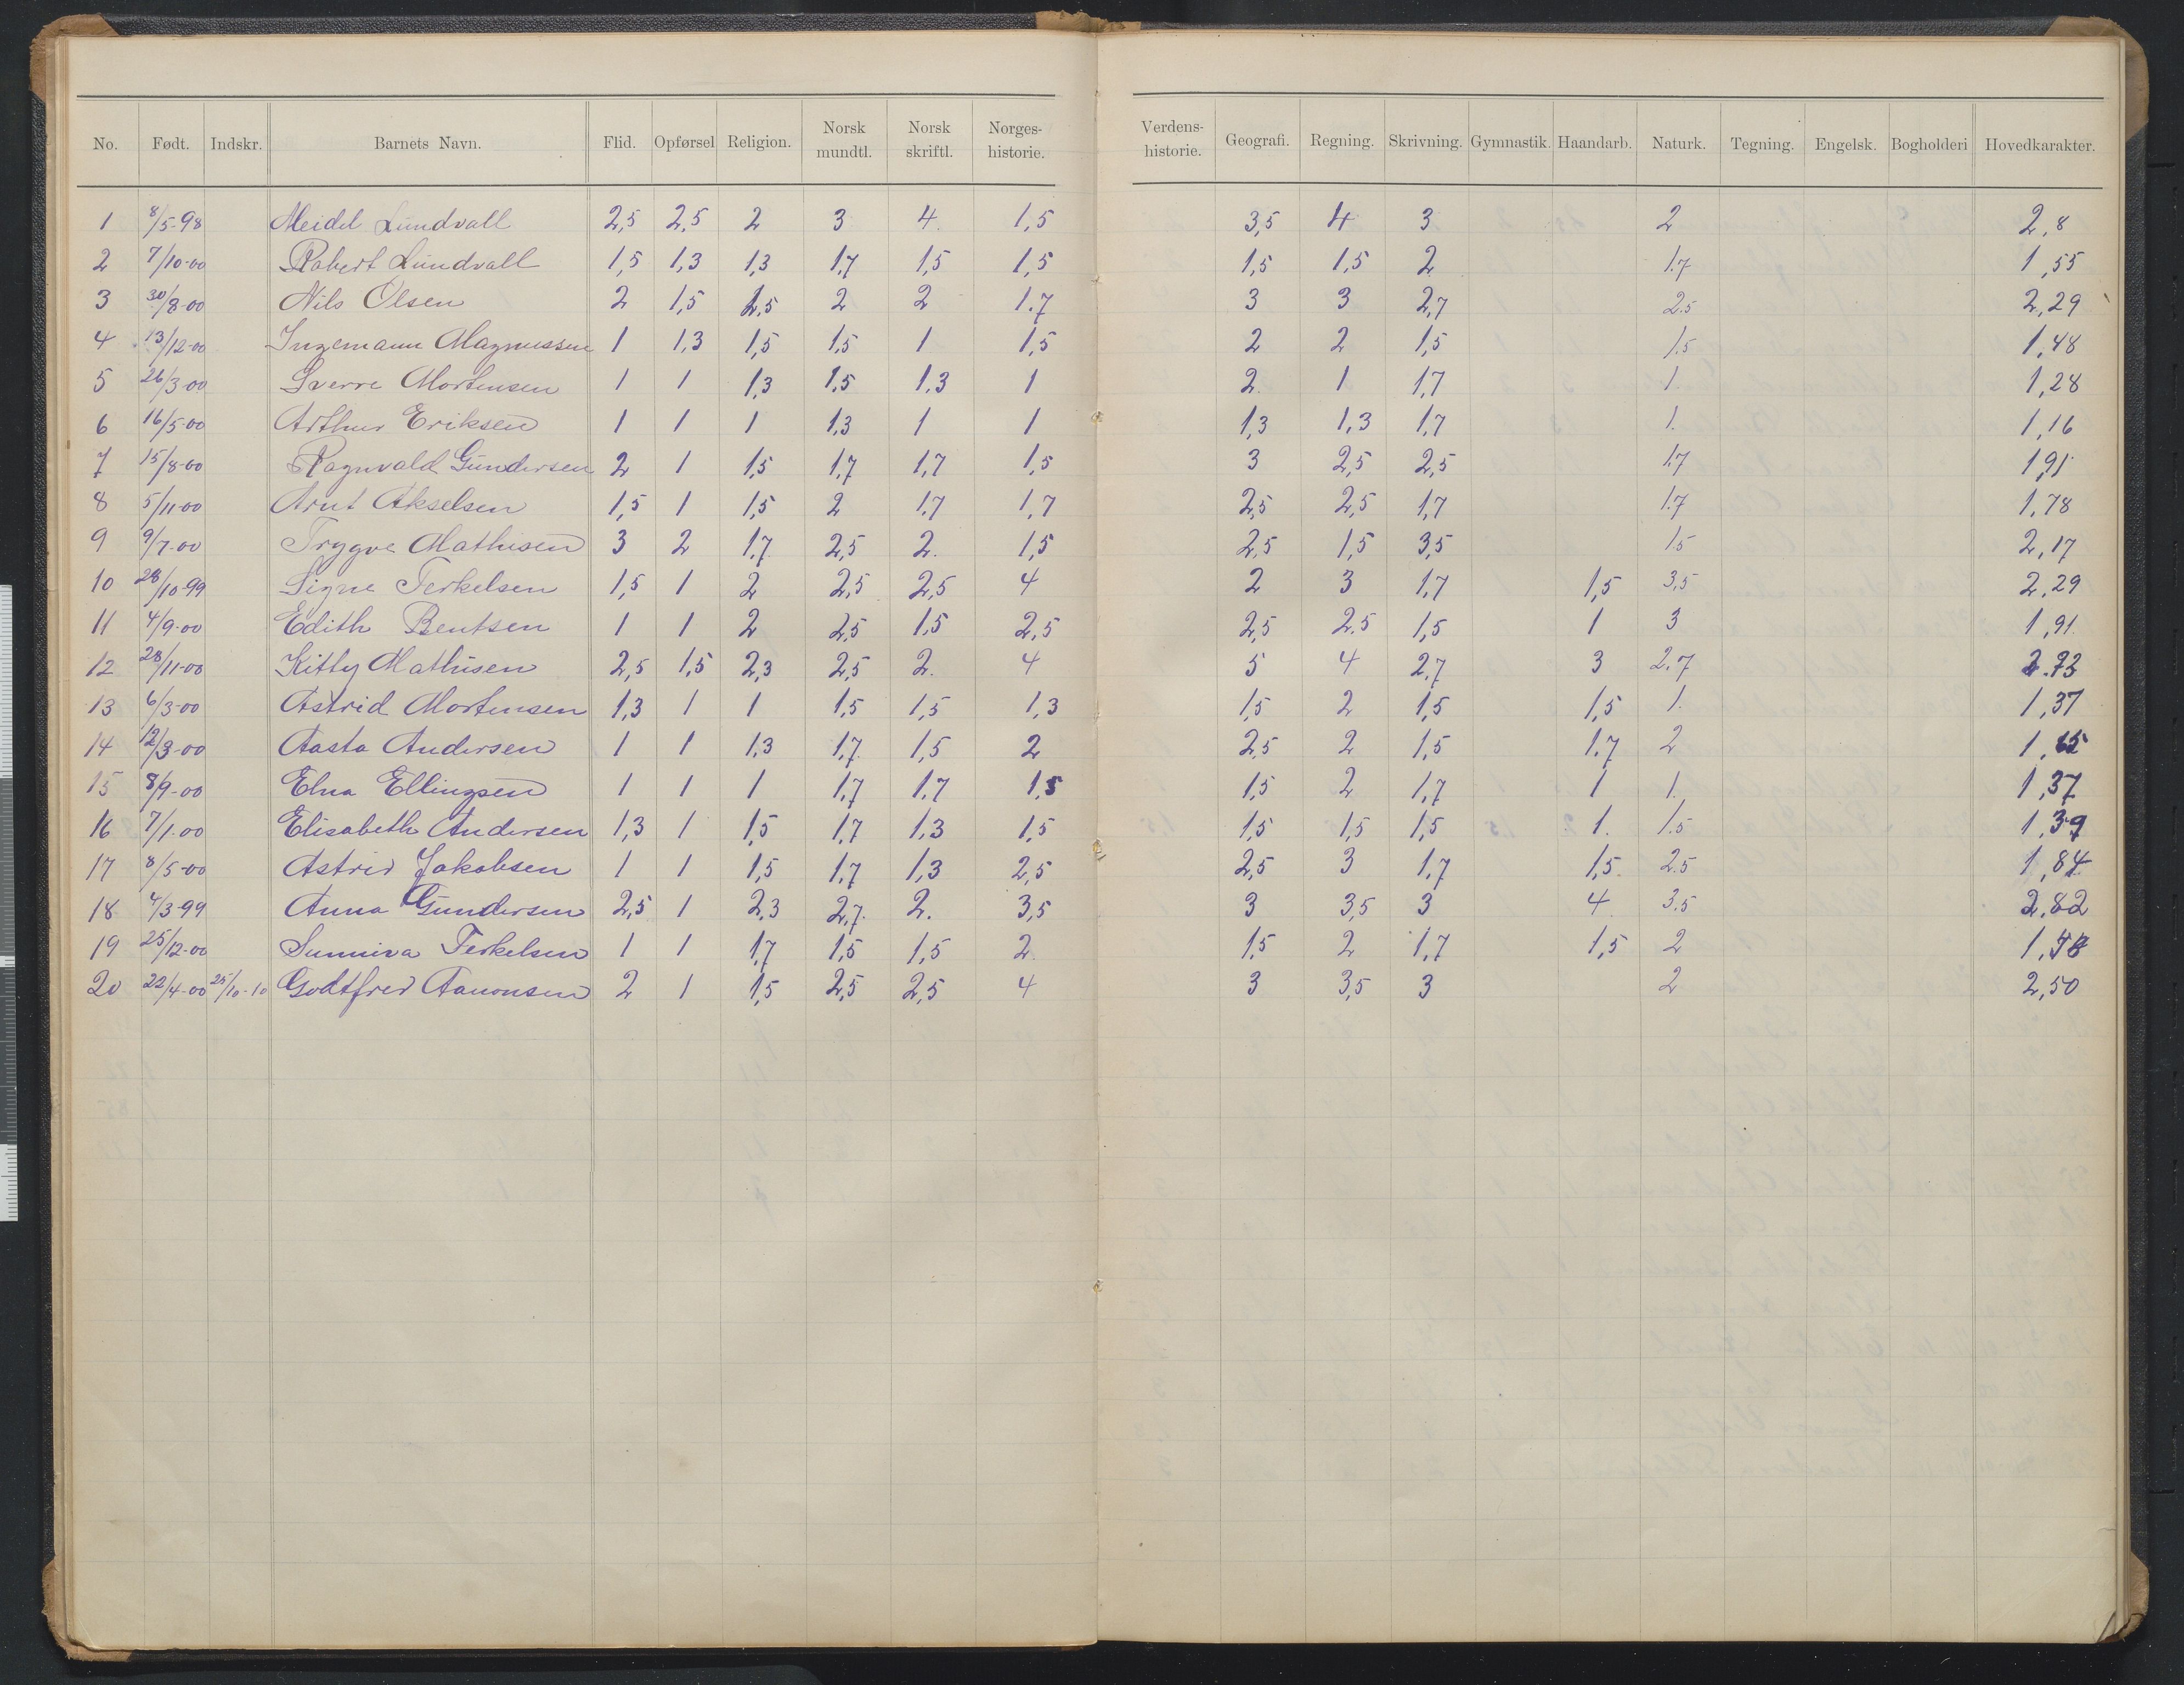 No. Født. Indskr. Barnets Navn. Flid. Opførsel Religion. Norsk mundtl. Norsk skriftl. Norges-historie. Verdens-historie. Geografi. Regning. Skrivning. Gymnastik. Haandarb. Naturk. Tegning. Engelsk. Bogholderi Hovedkarakter.
1 8/5-98 Meidel Lundvall 2,5 2,5 2 3 4. 1,5 3,5 4 3 2 2,8
2 7/10-00 Robert Lundvall 1,5 1,3 1,3 1,7 1,5 1,5 1,5 1,5 2 1.7 1,55
3 30/8-00 Nils Olsen 2 1,5 2,5 2 2 1.7 3 3 2,7 2.5 2,29
4 13/12-00 Ingemann Magnussen 1 1,3 1,5 1,5 1 1,5 2 2 1,5 1.5 1,48
5 26/3-00 Sverre Mortensen 1 1 1,3 1.5 1.3 1 2. 1 1,7 1. 1,28
6 16/5-00 Arthur Eriksen 1 1 1 1.3 1 1 1,3 1,3 1,7 1. 1,16
7 15/8-00 Ragnvald Gundersen 2 1 1,5 1,7 1,7 1,5 3 2,5 2,5 1.7 1,91
8 5/11-00 Arnt Akselsen 1,5 1 1,5 2 1.7 1,7 2,5 2,5 1,7 1.7 1,78
9 9/7-00 Trygve Mathisen 3 2 1,7 2,5 2. 1,5 2,5 1,5 3,5 1.5 2,17
10 28/10-99 Signe Terkelsen 1,5 1 2 2,5 2,5 4 2 3 1,7 1,5 3,5 2,29
11 4/9-00 Edith Bentsen 1 1 2 2,5 1,5 2,5 2,5 2.5 1,5 1 3 1,91.
12 28/11-00 Kitty Mathisen 2,5 1,5 2,3 2,5 2. 4 5 4 2,7 3 2.7 2.73
13 6/3-00 Astrid Mortensen 1,3 1 1 1,5 1,5 1,3 1,5 2 1,5 1,5 1. 1,37
14 12/3-00 Aasta Andersen 1 1 1.3 1,7. 1,5 2 2,5 2 1,5 1.7 2 1,65
15 8/9-00 Elna Ellingsen 1 1 1 1,7 1.7 1,5 1,5 2 1,7 1 1. 1,37
16 7/1-00 Elisabeth Andersen 1,3 1 1,5 1,7 1,3 1,5 1,5 1,5 1,5 1. 1.5 1,39
17 8/5-00 Astrid Jakobsen 1 1 1,5 1,7 1,3 2,5 2,5 3 1,7 1,5. 2.5 1,84
18 4/3-99 Anna Gundersen 2,5 1 2,3 2,7. 2. 3,5 3 3,5 3 4 3.5 2,82
19 25/12-00 Sunniva Terkelsen 1 1 1,7 1,5 1,5 2. 1,5 2 1,7 1,5 2
20 22/4-00 25/10-10 Godtfred Aanonsen 2 1 1,5 2,5 2,5 4 3 3,5 3 2 2,50